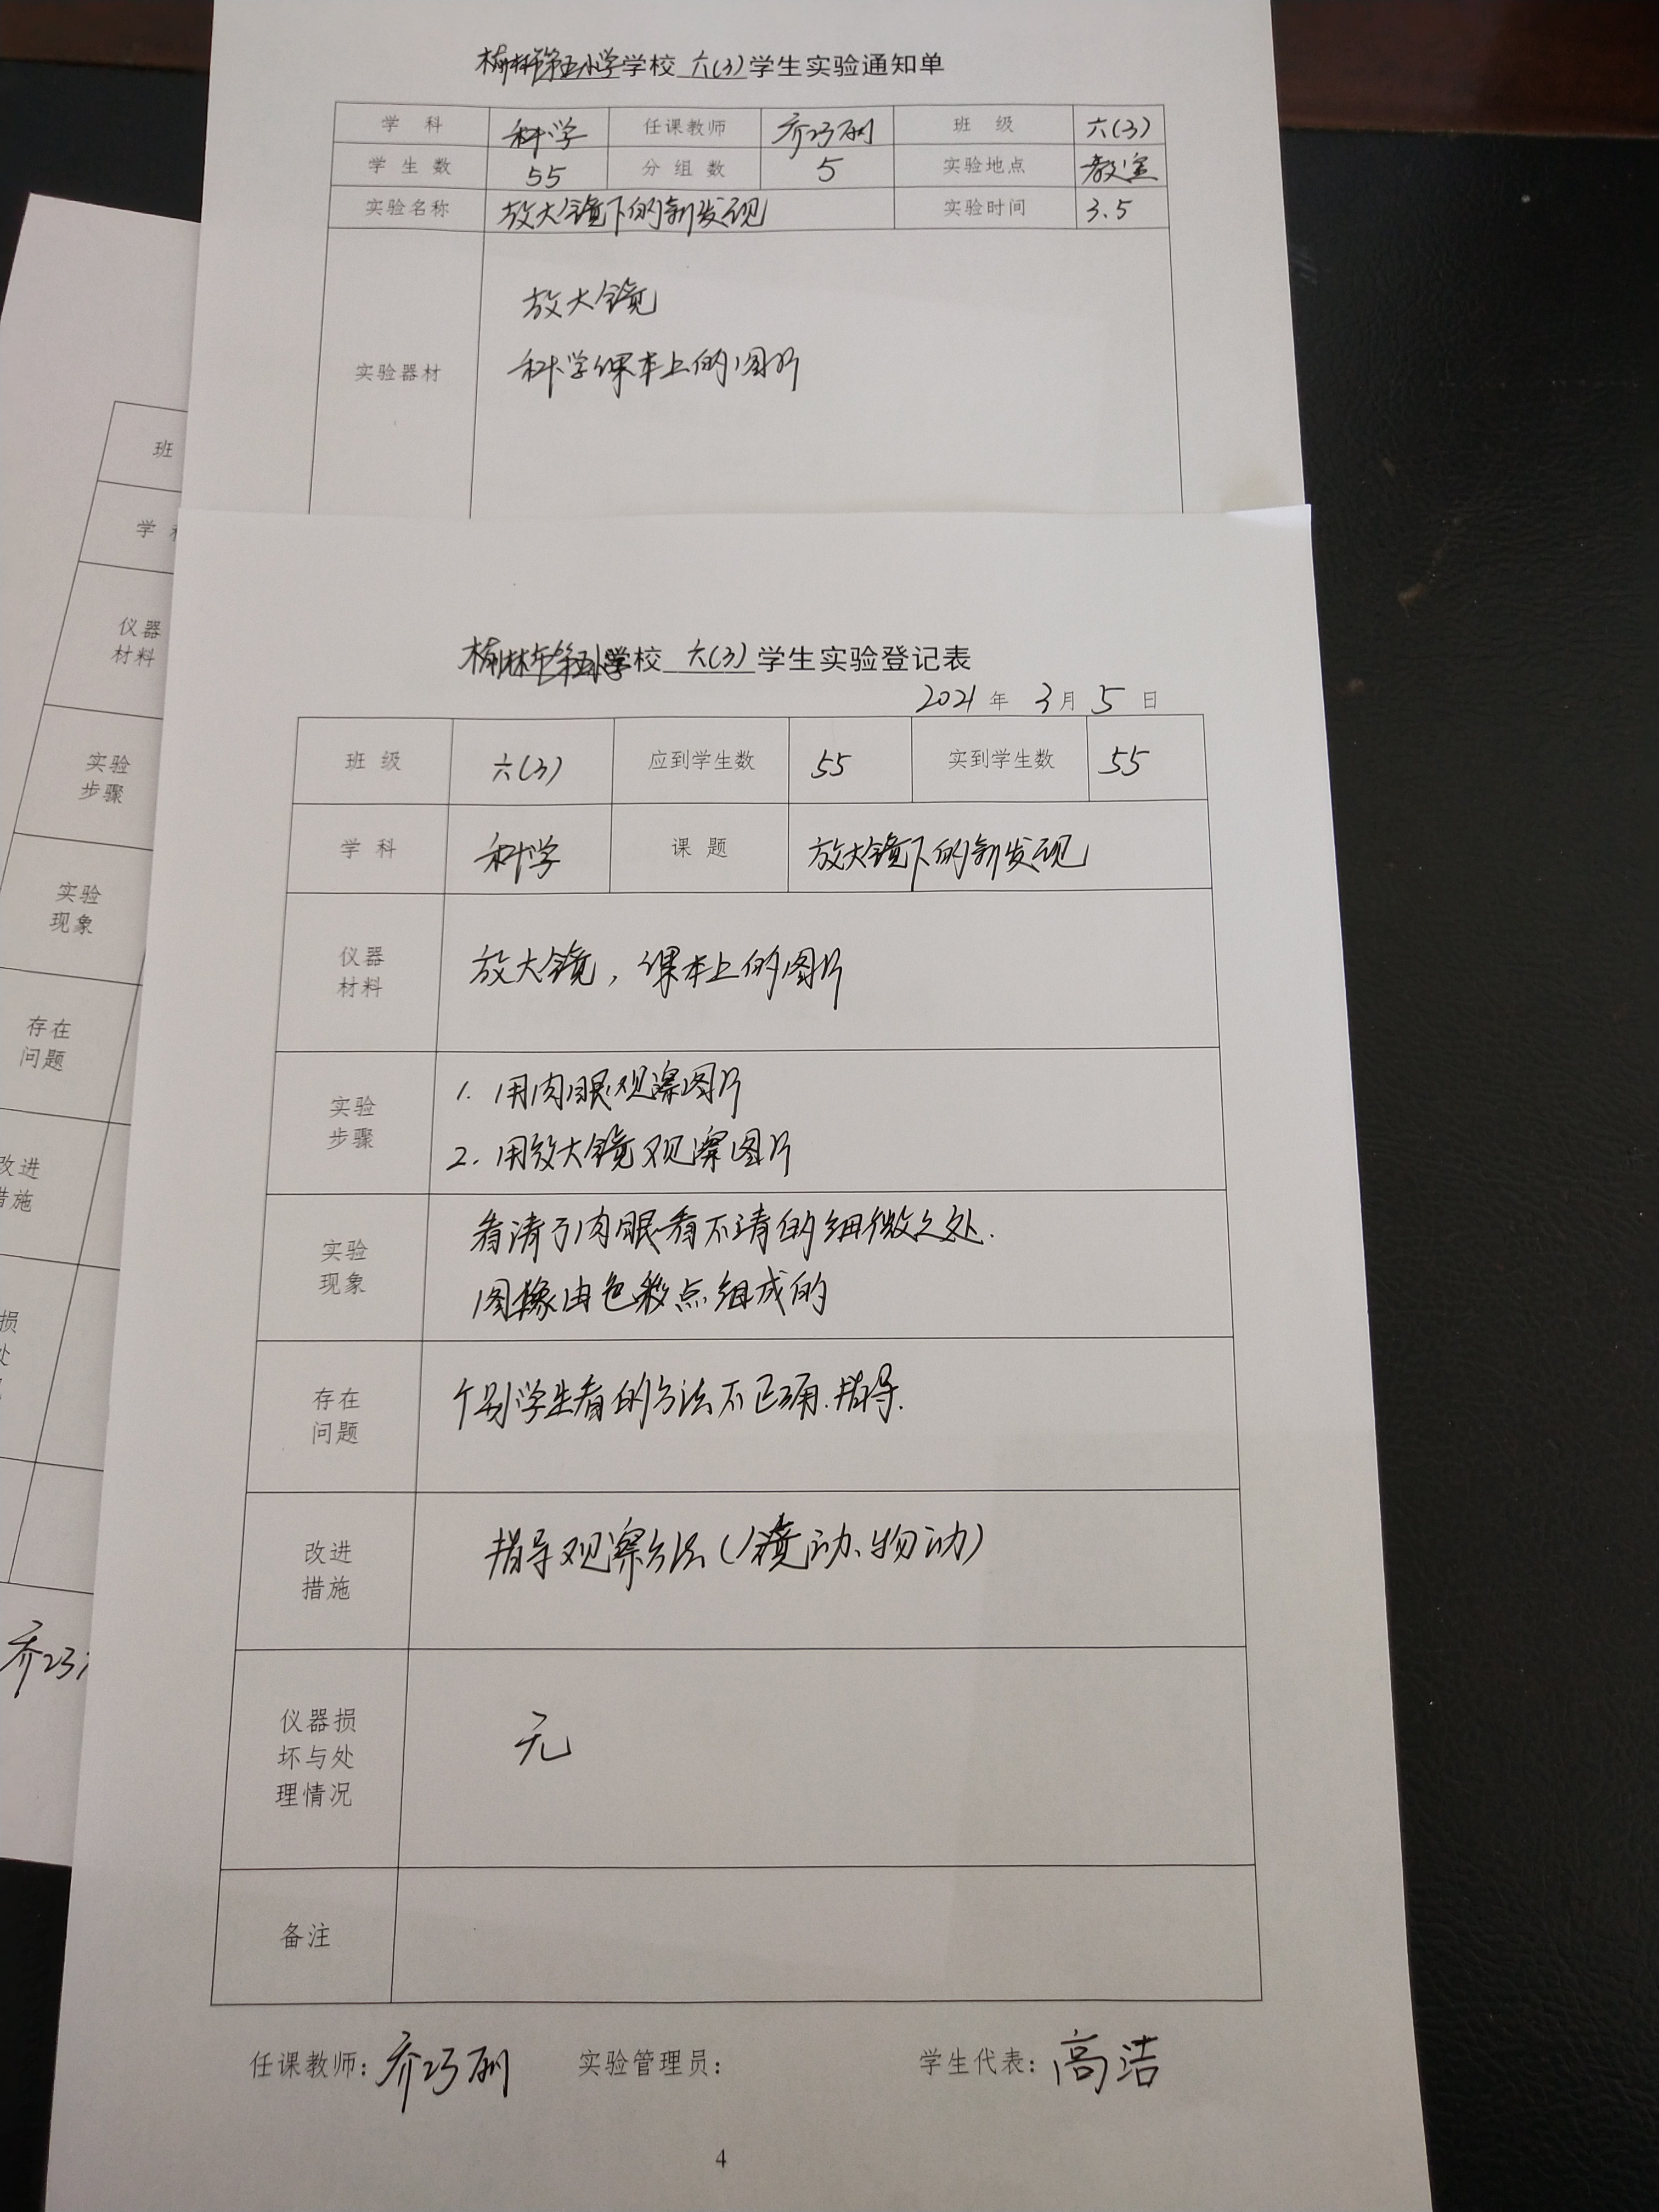 榆林市第五小学学校 六(3) 学生实验通知单
学 科 科学 任课教师 乔巧丽 班 级 六(3)
学 生 数 55 分 组 数 5 实验地点 教室
实验名称 放大镜下的新发现 实验时间 3.5
放大镜
实验器材 科学课本上的图片
榆林市第五小学校 六(3) 学生实验登记表
2021 年 3 月 5 日
班 级 六(3) 应到学生数 55 实到学生数 55
学 科 科学 课 题 放大镜下的新发现
仪器
材料
放大镜，课本上的图片
实验
步骤
1. 用肉眼观察图片
2. 用放大镜观察图片
实验
现象
看清了肉眼看不清的细微之处.
图像由色彩点组成的
存在
问题
个别学生看的方法不正确.指导.
改进
措施
指导观察方法(镜动、物动)
仪器损
坏与处
理情况
无
备注
任课教师: 乔巧丽 实验管理员: 学生代表: 高洁
4
班
学
仪器
材料
实验
步骤
实验
现象
存在
问题
改进
措施
损
处
乔巧